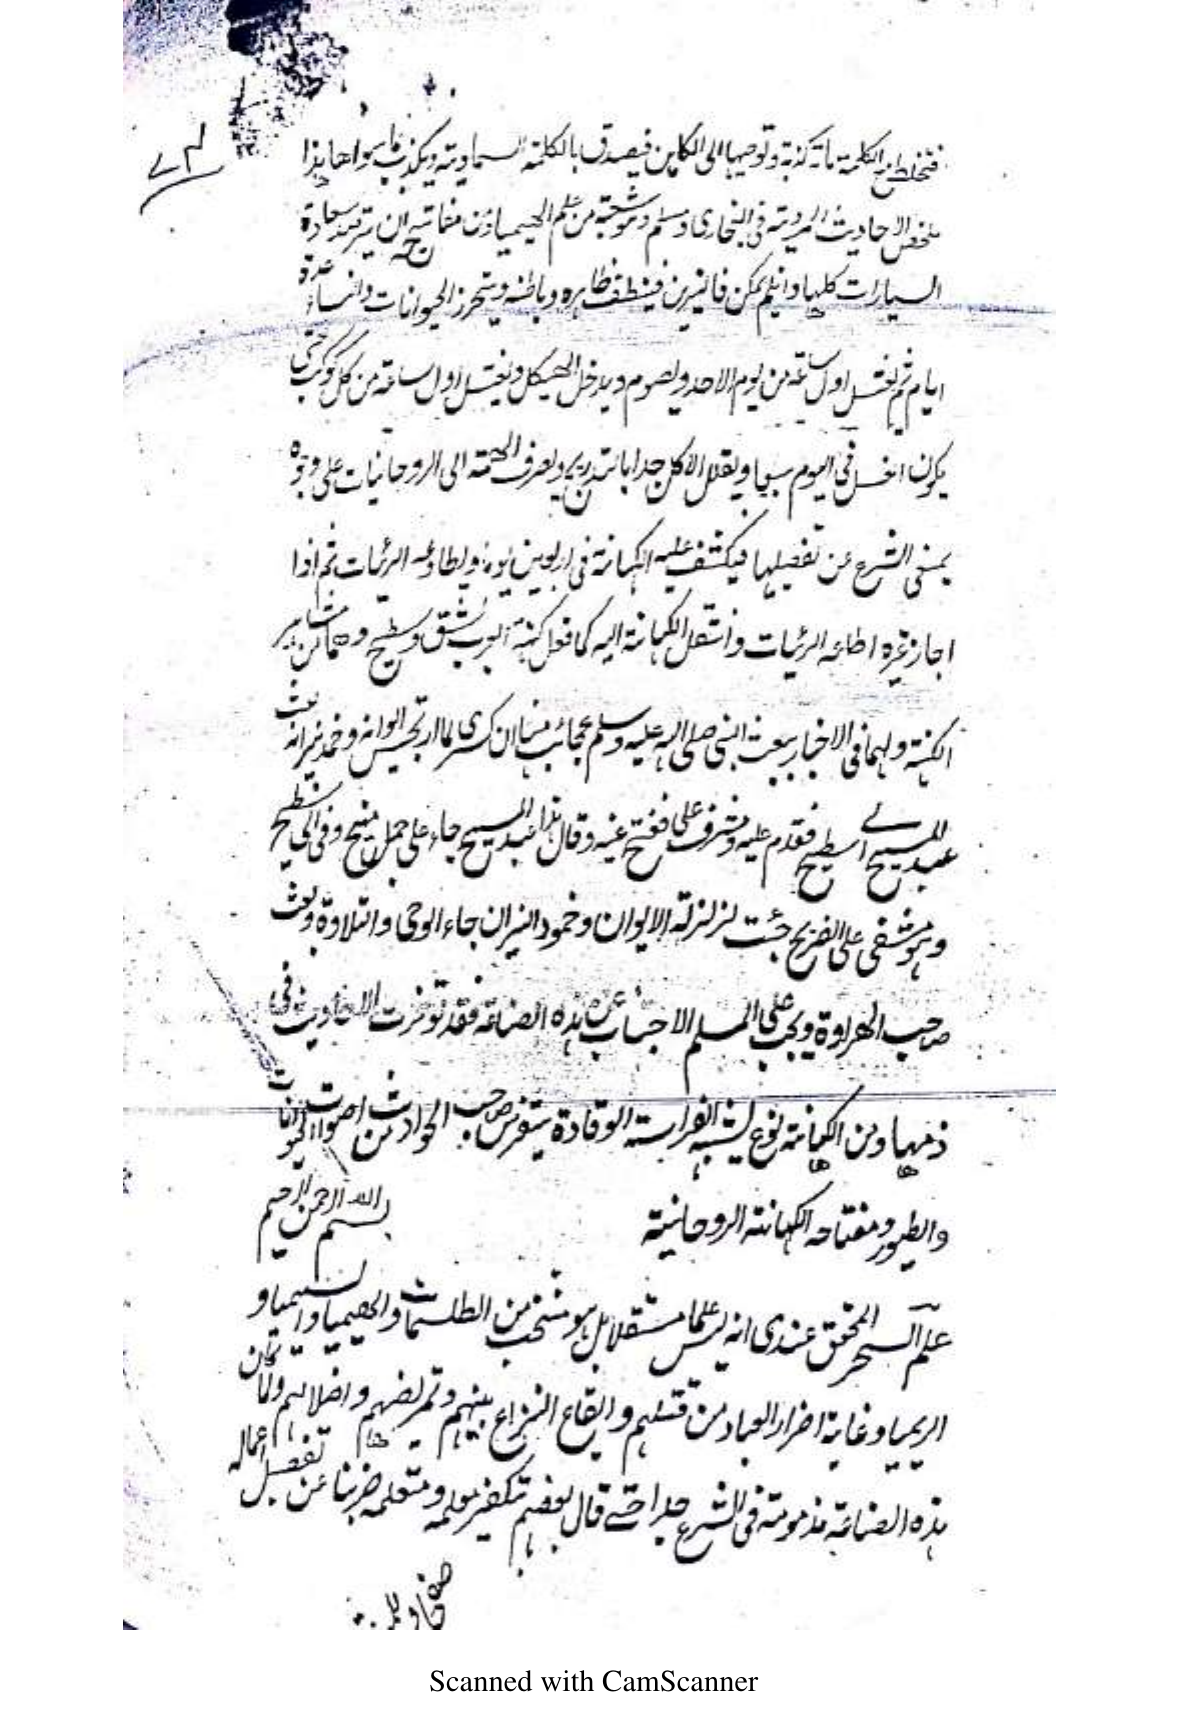 فتخلط مع الكلمة مائة كذبة وتوحيها الى الكاهن فيصدق بالكلمة السماوية ويكذب ما سواها هذا
ملخص الاحاديث المروية فى البخارى ومسلم وشعبة من علم الهيميا ومن مفاتيح ان يترصد سعادة
السيارات كلها وانلم يمكن فالنيرين فينظف ظاهره وباطنه ويتحرز الحيوانات والنساء عدة
ايام ثم يغتسل اول ساعة من يوم الاحد ويصوم ويدخل الهيكل ويغتسل اول ساعة من كل كوكب حتى
يكون اغسل فى اليوم سبعا ويقلل الاكل جدا بالتدريج ويصرف الهمة الى الروحانيات على وجوه
يمنعنى الشرع عن تفصيلها فيكشف عليه الكهانة فى اربعين يوما ويطاوعه الرئيات ثم اذا
اجاز غيره اطاعه الرئيات وانتقل الكهانة اليه كما فعل كهنة العرب شق وسطيح وهما من مشاهير
الكهنة ولهما فى الاخبار ببعث النبى صلى الله عليه وسلم عجائب منها ان كسرى لما ارتجس ايوانه وخمد نيرانه بعث
عبد المسيح الى سطيح فقدم عليه ومشرف على ففتح عينه وقال هذا عبد المسيح جاء على جمل مشيح وفى الى سطيح
وهو مشفى على الضريح جئت لزلزلة الايوان وخمود النيران جاء الوحى والتلاوة وبعث
صاحب الهراوة ويجب على المسلم الاجتناب عن هذه الصناعة فقد توفرت الاحاديث فى
ذمها ومن الكهانة نوع يشبه الفراسة الوقادة يتفرس صاحب الحوادث من اصوات الحيوانات
والطيور ومفتاحه الكهانة الروحانية
بسم الله الرحمن الرحيم
علم السحر المحقق عندى انه ليس علما مستقلا بل هو منتخب من الطلسمات والهيميا والسيميا و
الريميا وغاية اضرار العباد من قتلهم وايقاع النزاع بينهم وتمريضهم واضلالهم ولما كان
هذه الصناعة مذمومة فى الشرع جدا حتى قال بعضهم بتكفير معلمه ومتعلمه ضربنا عن تفصيل اعماله